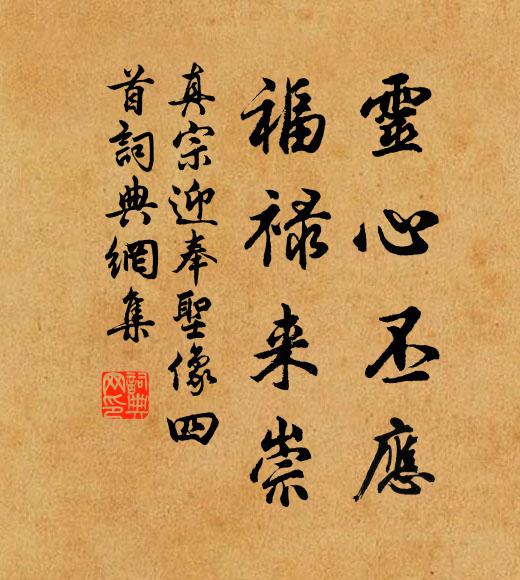 靈心丕應
福祿来崇
真宗迎奉聖像四
首詞典網集
詞典
网印